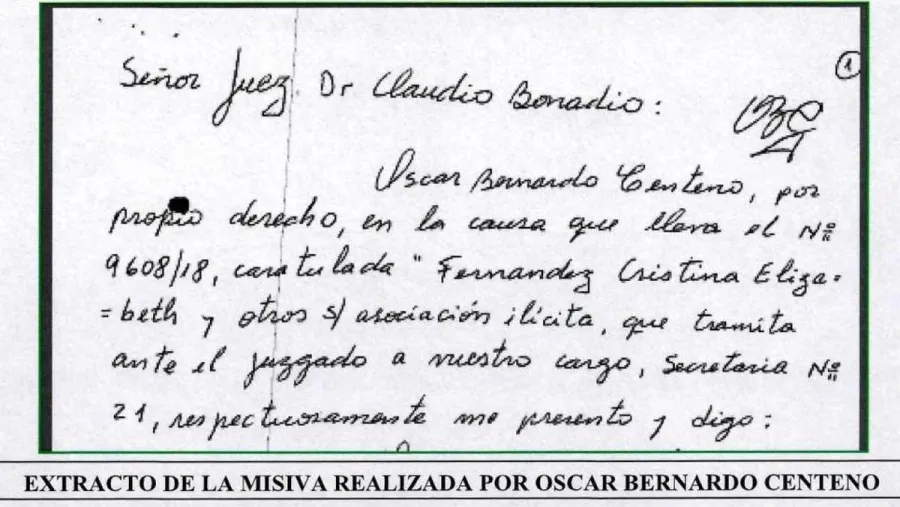 1
Señor Juez Dr Claudio Bonadio:
Oscar Bernardo Centeno, por
propio derecho, en la causa que lleva el Nº
9608/18, caratulada "Fernandez Cristina Eliza=
=beth y otros s/ asociación ilícita, que tramita
ante el juzgado a vuestro cargo, Secretaria Nº
21, respetuosamente me presento y digo:
EXTRACTO DE LA MISIVA REALIZADA POR OSCAR BERNARDO CENTENO